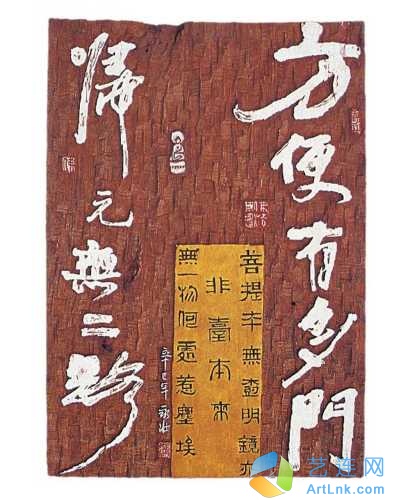 方便有多門
歸元無二路
菩提本無查明鏡亦
非臺本來
無一物何處惹塵埃
辛巳年
艺连网
ArtLnk.com